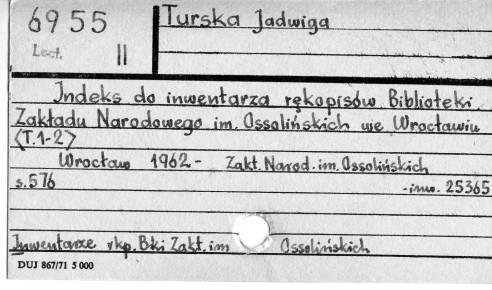 6955
Lect. II
Turska Jadwiga
Indeks do inwentarza rękopisów Biblioteki
Zakładu Narodowego im. Ossolińskich we Wrocławiu
<T.1-2>
Wrocław 1962- Zakł. Narod. im. Ossolińskich
s. 576 -inw. 25365
Inwentarze rkp. Bki Zakł. im Ossolińskich
DUJ 867/71 5 000